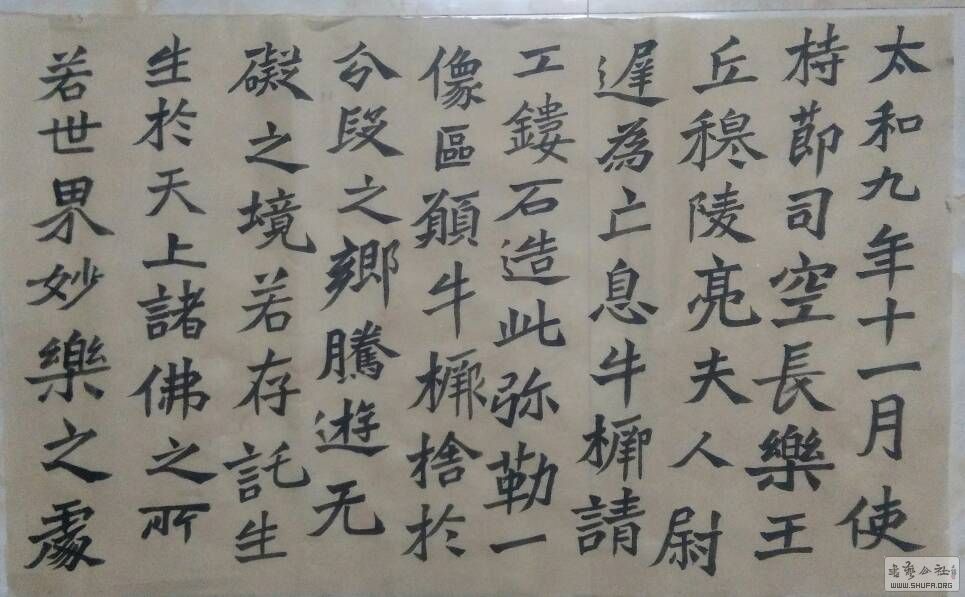 太和九年十一月使
持節司空長樂王
丘穆陵亮夫人尉
遲為亡息牛橛請
工鏤石造此弥勒一
像區願牛橛捨於
分段之鄉騰遊无
礙之境若存託生
生於天上諸佛之所
若世界妙樂之處
书艺公社
WWW.SHUFA.ORG